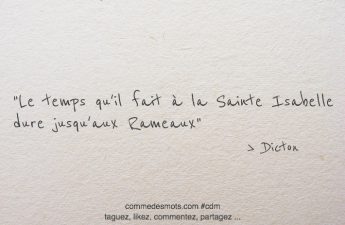 "Le temps qu'il fait à la Sainte Isabelle
dure jusqu'aux Rameaux"
> Dicton
commedesmots.com #cdm
taguez, likez, commentez, partagez ...